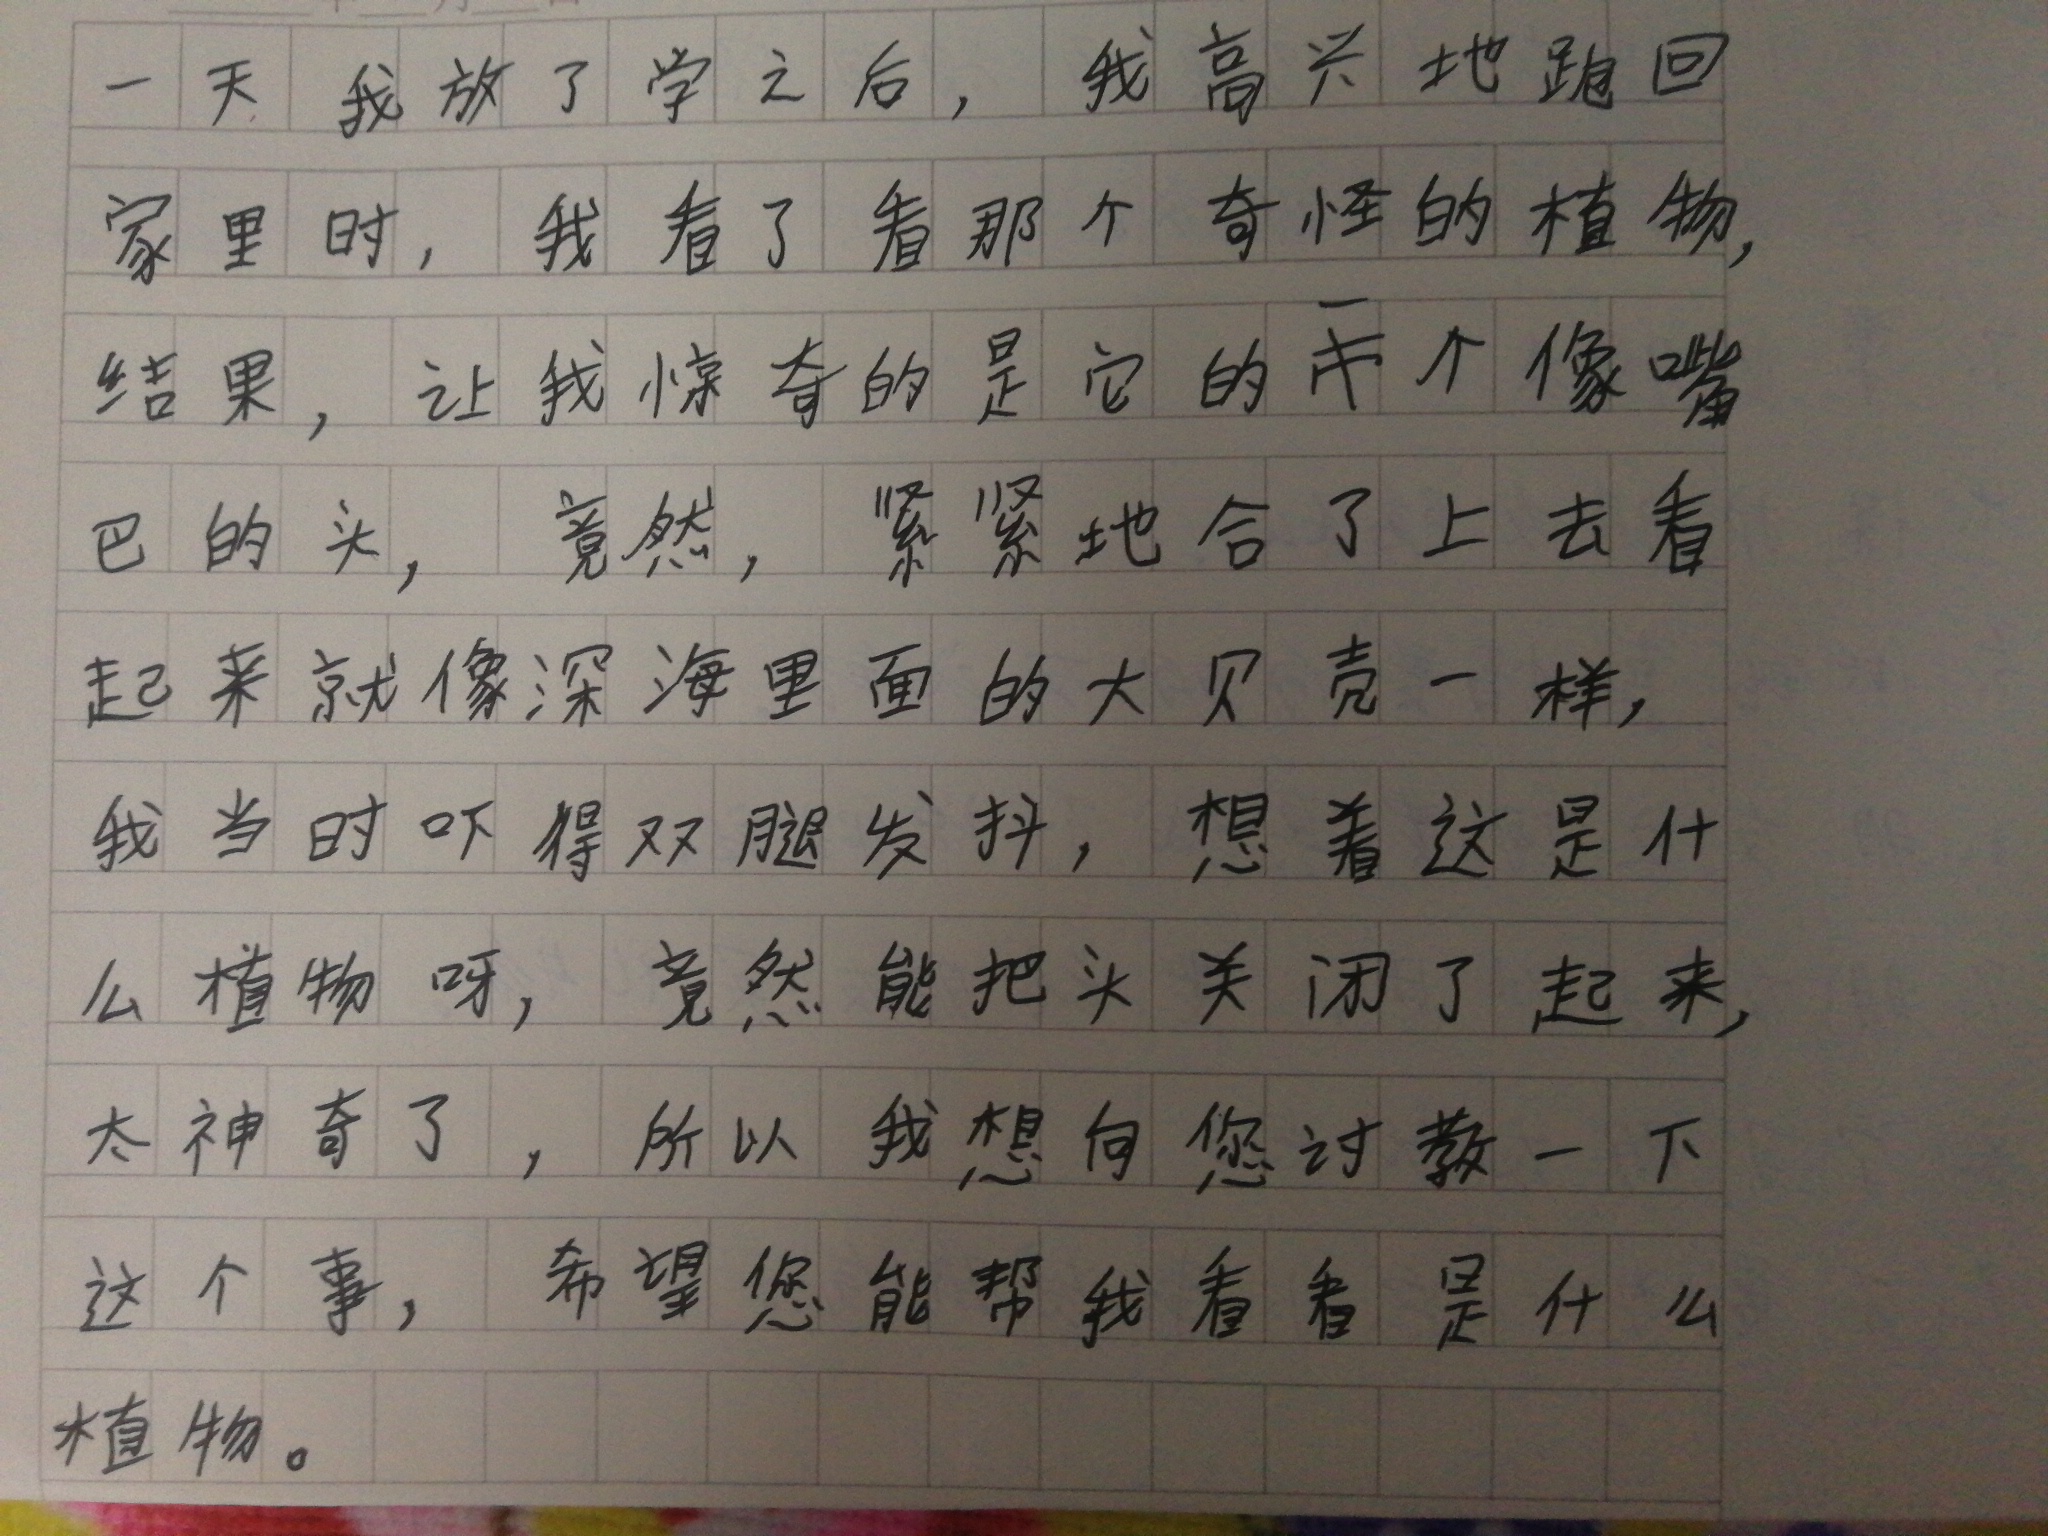 年 月 日
一天我放了学之后，我高兴地跑回
家里时，我看了看那个奇怪的植物，
结果，让我惊奇的是它的一个像嘴
巴的头，竟然，紧紧地合了上去看
起来就像深海里面的大贝壳一样，
我当时吓得双腿发抖，想着这是什
么植物呀，竟然能把头关闭了起来，
太神奇了，所以我想向您讨教一下
这个事，希望您能帮我看看是什么
植物。